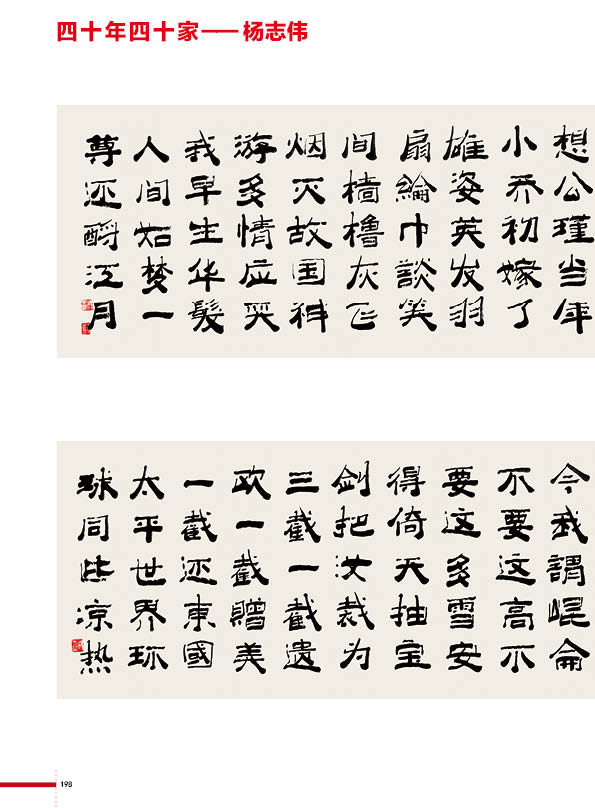 四十年四十家——杨志伟
想公瑾当年
小乔初嫁了
雄姿英发羽
扇綸巾談笑
间樯橹灰飞
烟灭故国神
游多情应笑
我早生华髮
人间如梦一
尊还酹江月
今我謂崐侖
不要这高不
要这多雪安
得倚天抽宝
剑把汝裁为
三截一截遗
欧一截贈美
一截还東國
太平世界环
球同此凉热
198